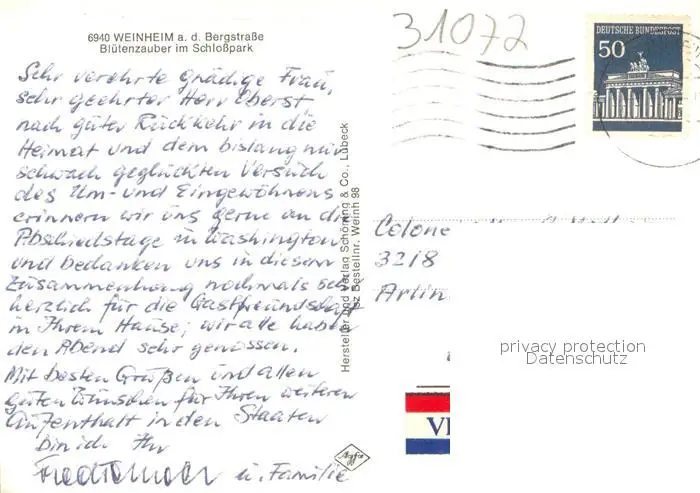 6940 WEINHEIM a. d. Bergstraße
Blütenzauber im Schloßpark
31072
DEUTSCHE BUNDESPOST
50
Sehr verehrte gnädige Frau,
sehr geehrter Herr Oberst
nach guter Rückkehr in die
Heimat und dem bislang nur
schwach geglückten Versuch
des Um- und Eingewöhnens
erinnern wir uns gerne an die
Abschiedstage in Washington
und bedanken uns in diesem
Zusammenhang nochmals sehr
herzlich für die Gastfreundschaft
in Ihrem Hause; wir alle haben
den Abend sehr genossen.
Mit besten Grüßen und allen
guten Wünschen für Ihren weiteren
Aufenthalt in den Staaten
bin ich Ihr
u. Familie
Hersteller und Verlag Schöning & Co., Lübeck
Bestellnr. Weinh 98
Agfa
Colone
3218
Arlin
privacy protection
Datenschutz